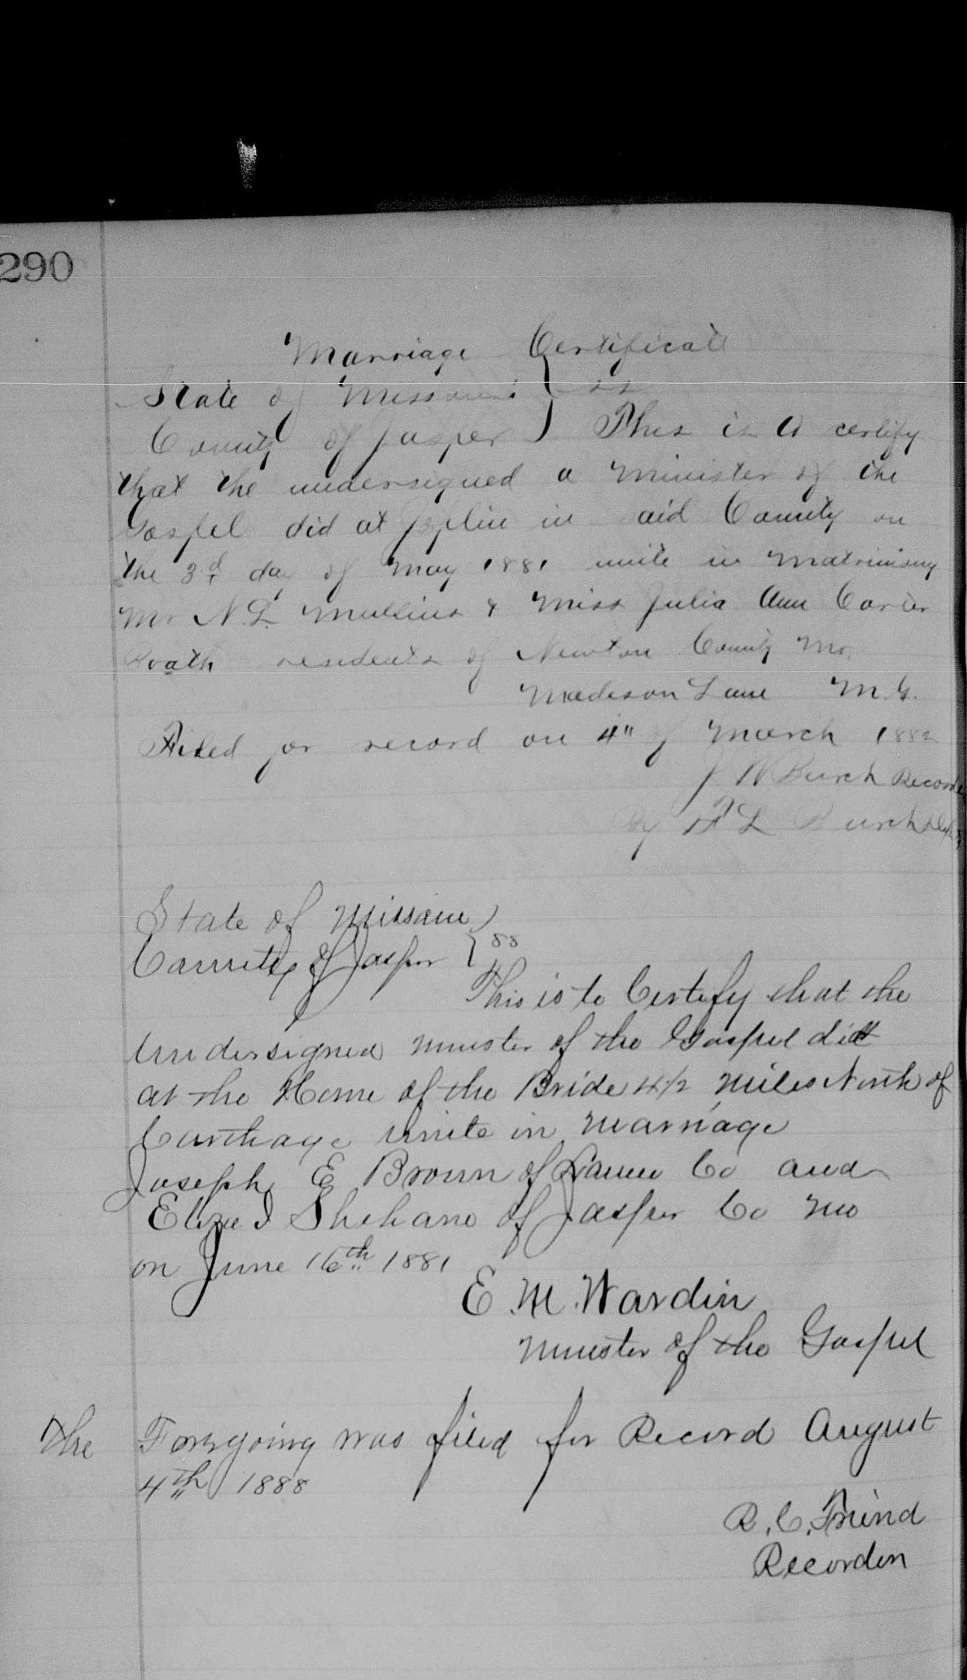 290
Marriage Certificate
State of Missouri } ss
County of Jasper } This is to certify
that the undersigned a Minister of the
Gospel did at Joplin in said County on
the 3rd day of May 1881 unite in Matrimony
Mr N. L. Mullins & Miss Julia Ann Carter
Boath residents of Newton County Mo.
Madison Lane M. G.
Filed for record on 4" of March 1882
J W Burch Recorder
By F L Burch Dpty
State of Missouri }
County of Jasper } ss
This is to Certify that the
Undersigned Minister of the Gospel did
at the Home of the Bride 4 1/2 Miles North of
Carthage Unite in Marriage
Joseph E Brown of Co and
Eliza J Shehane of Jasper Co Mo
on June 16th 1881
E. M. Wardin
Minister of the Gospel
The Foregoing was filed for Record August
4th 1888
R. C. Friend
Recorder